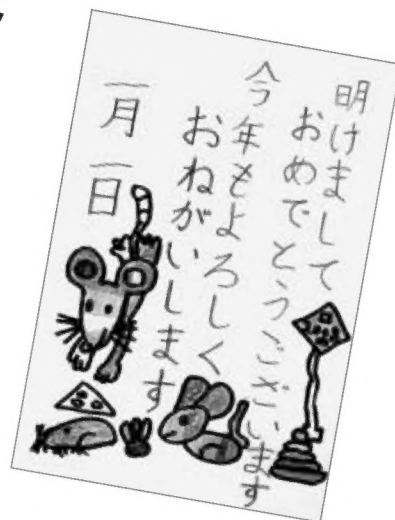 明けまして
おめでとうございます
今年もよろしく
おねがいします
一月一日